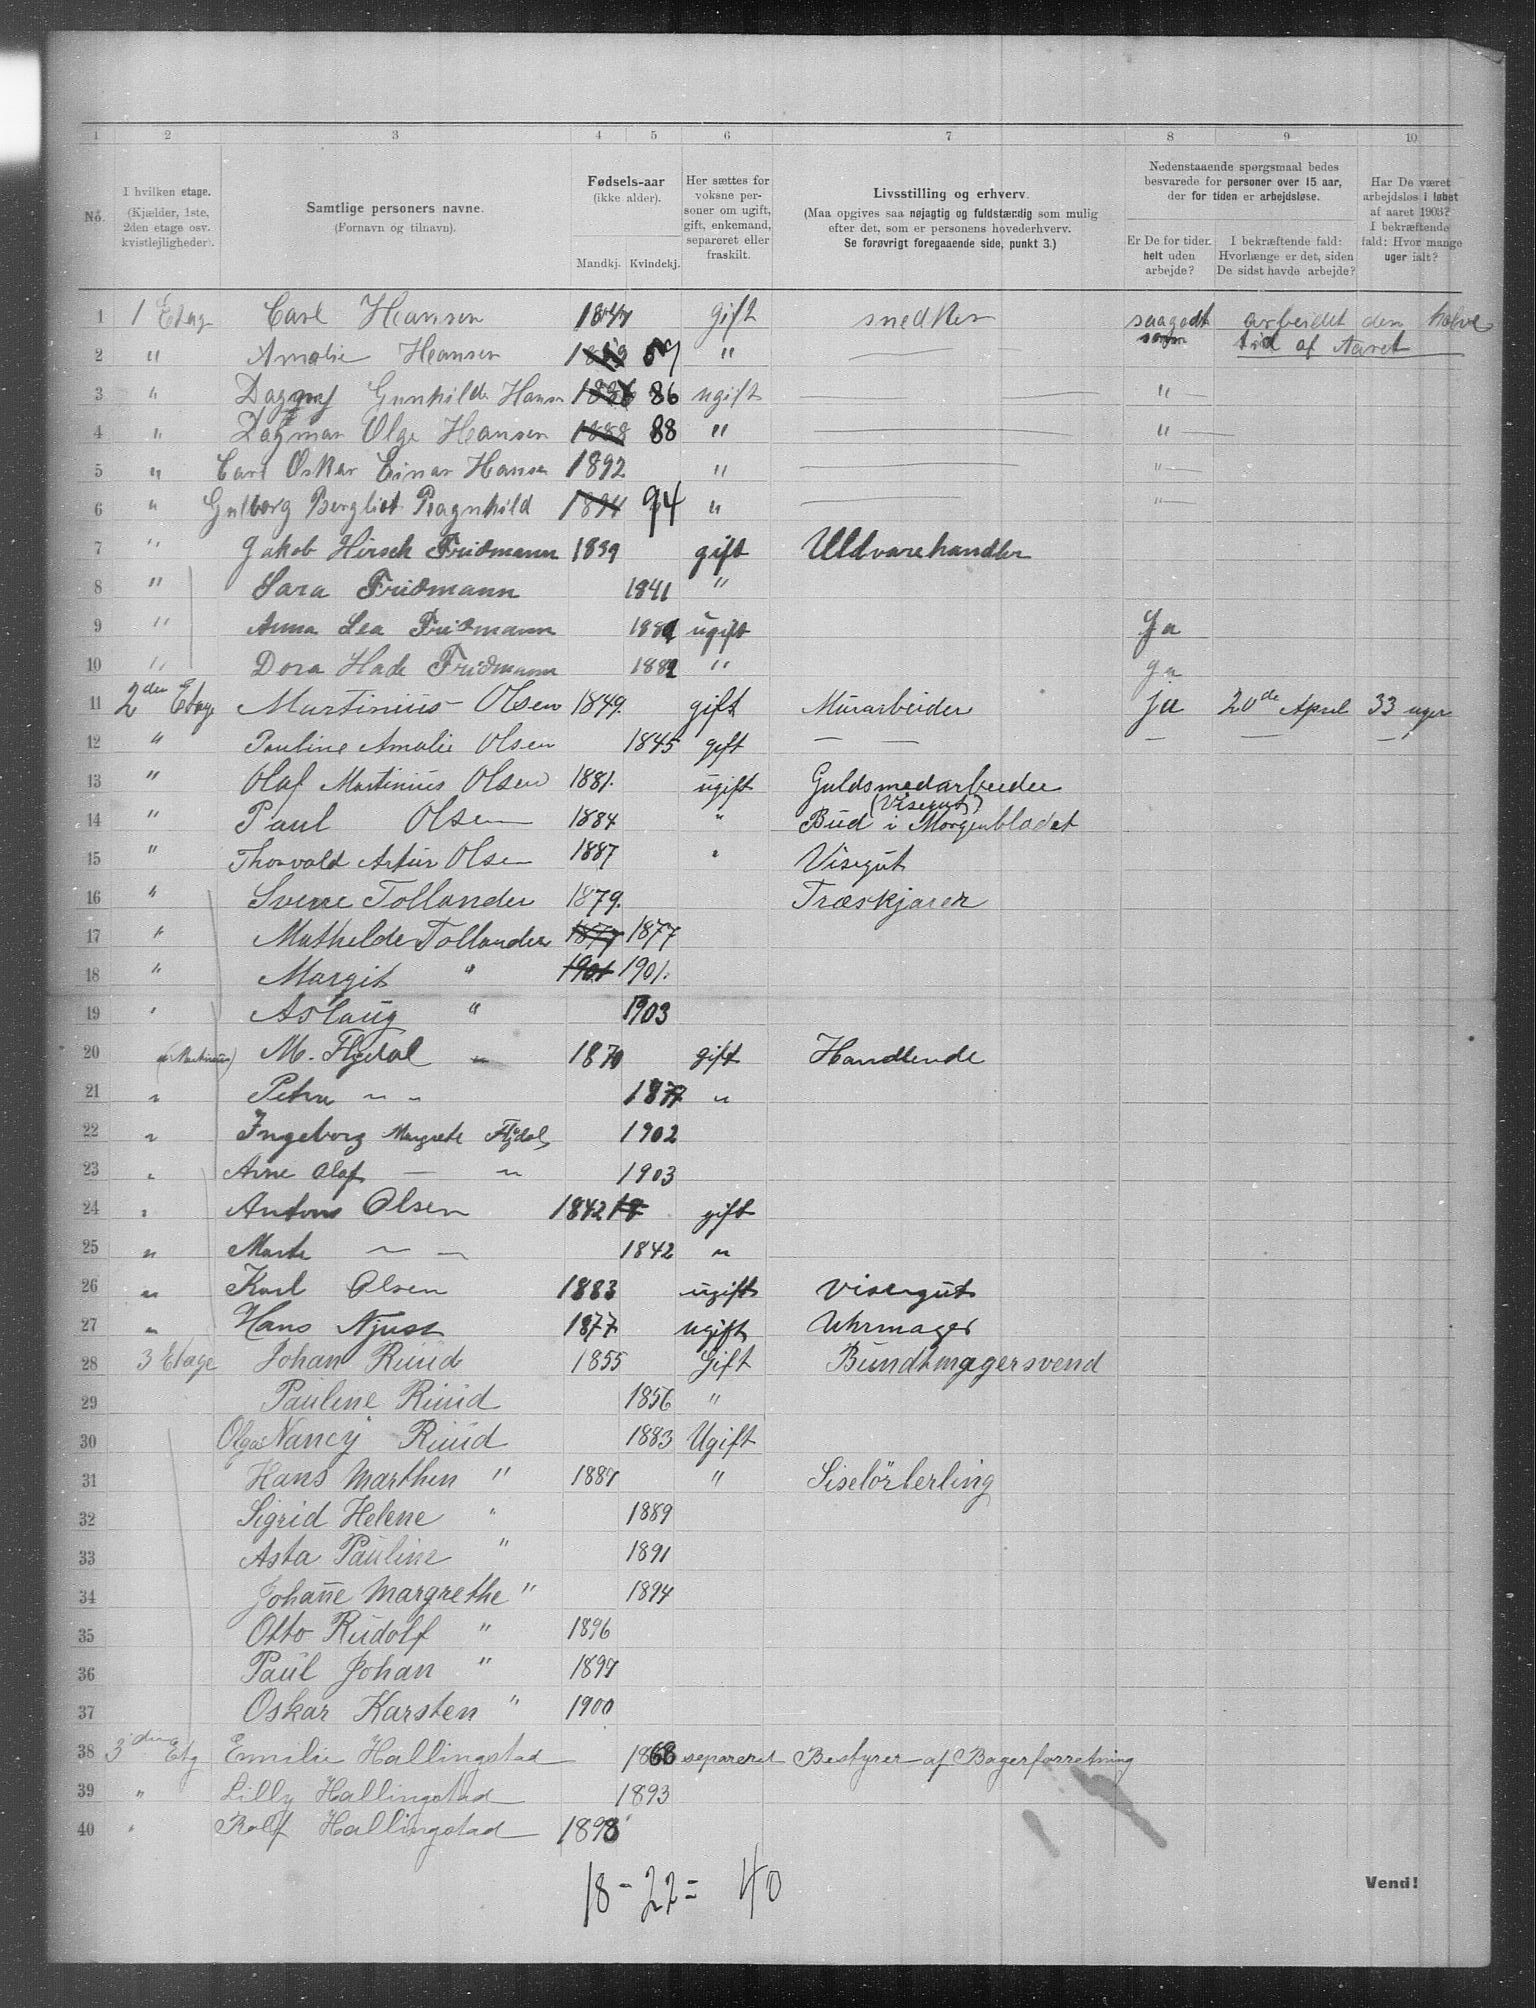 1 2 3 4 5 6 7 8 9 10
No.
I hvilken etage.
(Kjælder, 1ste,
2den etage osv.
kvistleiligheder).
Samtlige personers navne.
(Fornavn og tilnavn).
Fødsels-aar
(ikke alder).
Mandkj. Kvindekj.
Her sættes for
voksne per-
soner om ugift,
gift, enkemand,
separeret eller
fraskilt.
Livsstilling og erhverv.
(Maa opgives saa nøjagtig og fuldstændig som mulig
efter det, som er personens hovederhverv.
Se forøvrigt foregaaende side, punkt 3.)
Nedenstaaende spørgsmaal bedes
besvarede for personer over 15 aar,
der for tiden er arbejdsløse.
Er De for tiden
helt uden
arbejde?
I bekræftende fald:
Hvorlænge er det, siden
De sidst havde arbejde?
Har De været
arbejdsløs i løbet
af aaret 1903?
I bekræftende
fald: Hvor mange
uger ialt?
1 1 Etag Carl Hansen 1847 gift snedker saagodt som arbeidet den halve tid af Aaret
2 " Amalie Hansen 59 "
3 " Dagny Gunhilde Hansen 1886 86 ugift "
4 " Dagmar Olga Hansen 1888 88 " "
5 " Carl Oskar Einar Hansen 1892 " "
6 " Gulborg Bergliot Ragnhild 1894 94 " "
7 " Jakob Hirsch Fridmann 1839 gift Uldvarehandler
8 " Sara Fridmann 1841 "
9 " Anna Lea Fridmann ugift Ja
10 " Dora Hade Fridmann 1882 " Ja
11 2den Etage Martinius Olsen 1849. gift Murarbeider Ja 20de April 33 uger
12 " Pauline Amalie Olsen 1845 gift — — — — —
13 " Olaf Martinius Olsen 1881. ugift Guldsmedarbeider
14 " Paul Olsen 1884 " Bud (Visergut) i Morgenbladet
15 " Thorvald Artur Olsen 1887 " Visegut
16 " Sverre Tollander 1879. Træskjærer
17 " Mathilde Tollander 1877 1877
18 " Margit " 1901 1901.
19 " Aslaug " 1903
20 " (Martinius) M. Flydal " 1870 gift Handlende
21 " Petra " " 1877 "
22 " Ingeborg Margrete Flydal 1902
23 " Arne Olaf — " 1903
24 " Antons Olsen 1842 18 gift
25 " Marte — — 1842 "
26 " Karl Olsen 1883 ugift visergut
27 " Hans Njust 1877 ugift Uhrmager
28 3 Etage Johan Ruud 1855 Gift Bundtmagersvend
29 Paulene Ruud 1856 "
30 Olga Nancy Ruud 1883 Ugift
31 Hans Marthin " 1887 " Siselörlerling
32 Sigrid Helene " 1889
33 Asta Pauline " 1891
34 Johañe Margrethe " 1894
35 Otto Rudolf " 1896
36 Paul Johan " 1897
37 Oskar Karsten " 1900
38 3die Etg Emilie Hallingstad 1868 separeret Bestyrer af Bagerforretning
39 " Lilly Hallingstad 1893
40 " Rolf Hallingstad 1898
18 - 22 = 40
Vend!